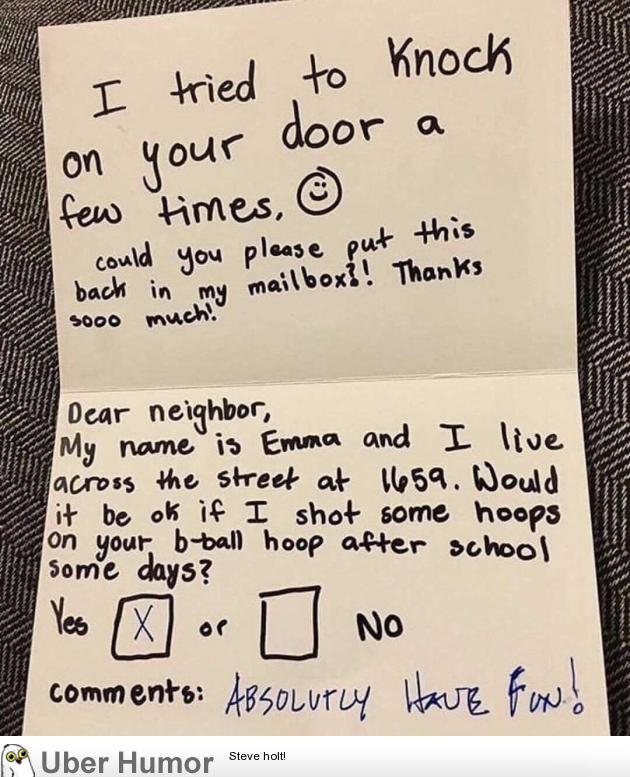 I tried to Knock
on your door a
few times.
could you please put this
back in my mailbox?! Thanks
sooo much!
Dear neighbor,
My name is Emma and I live
across the street at 1659. Would
it be ok if I shot some hoops
on your b-ball hoop after school
some days?
Yes X or NO
comments: ABSOLUTLY HAVE FUN!
Uber Humor Steve holt!